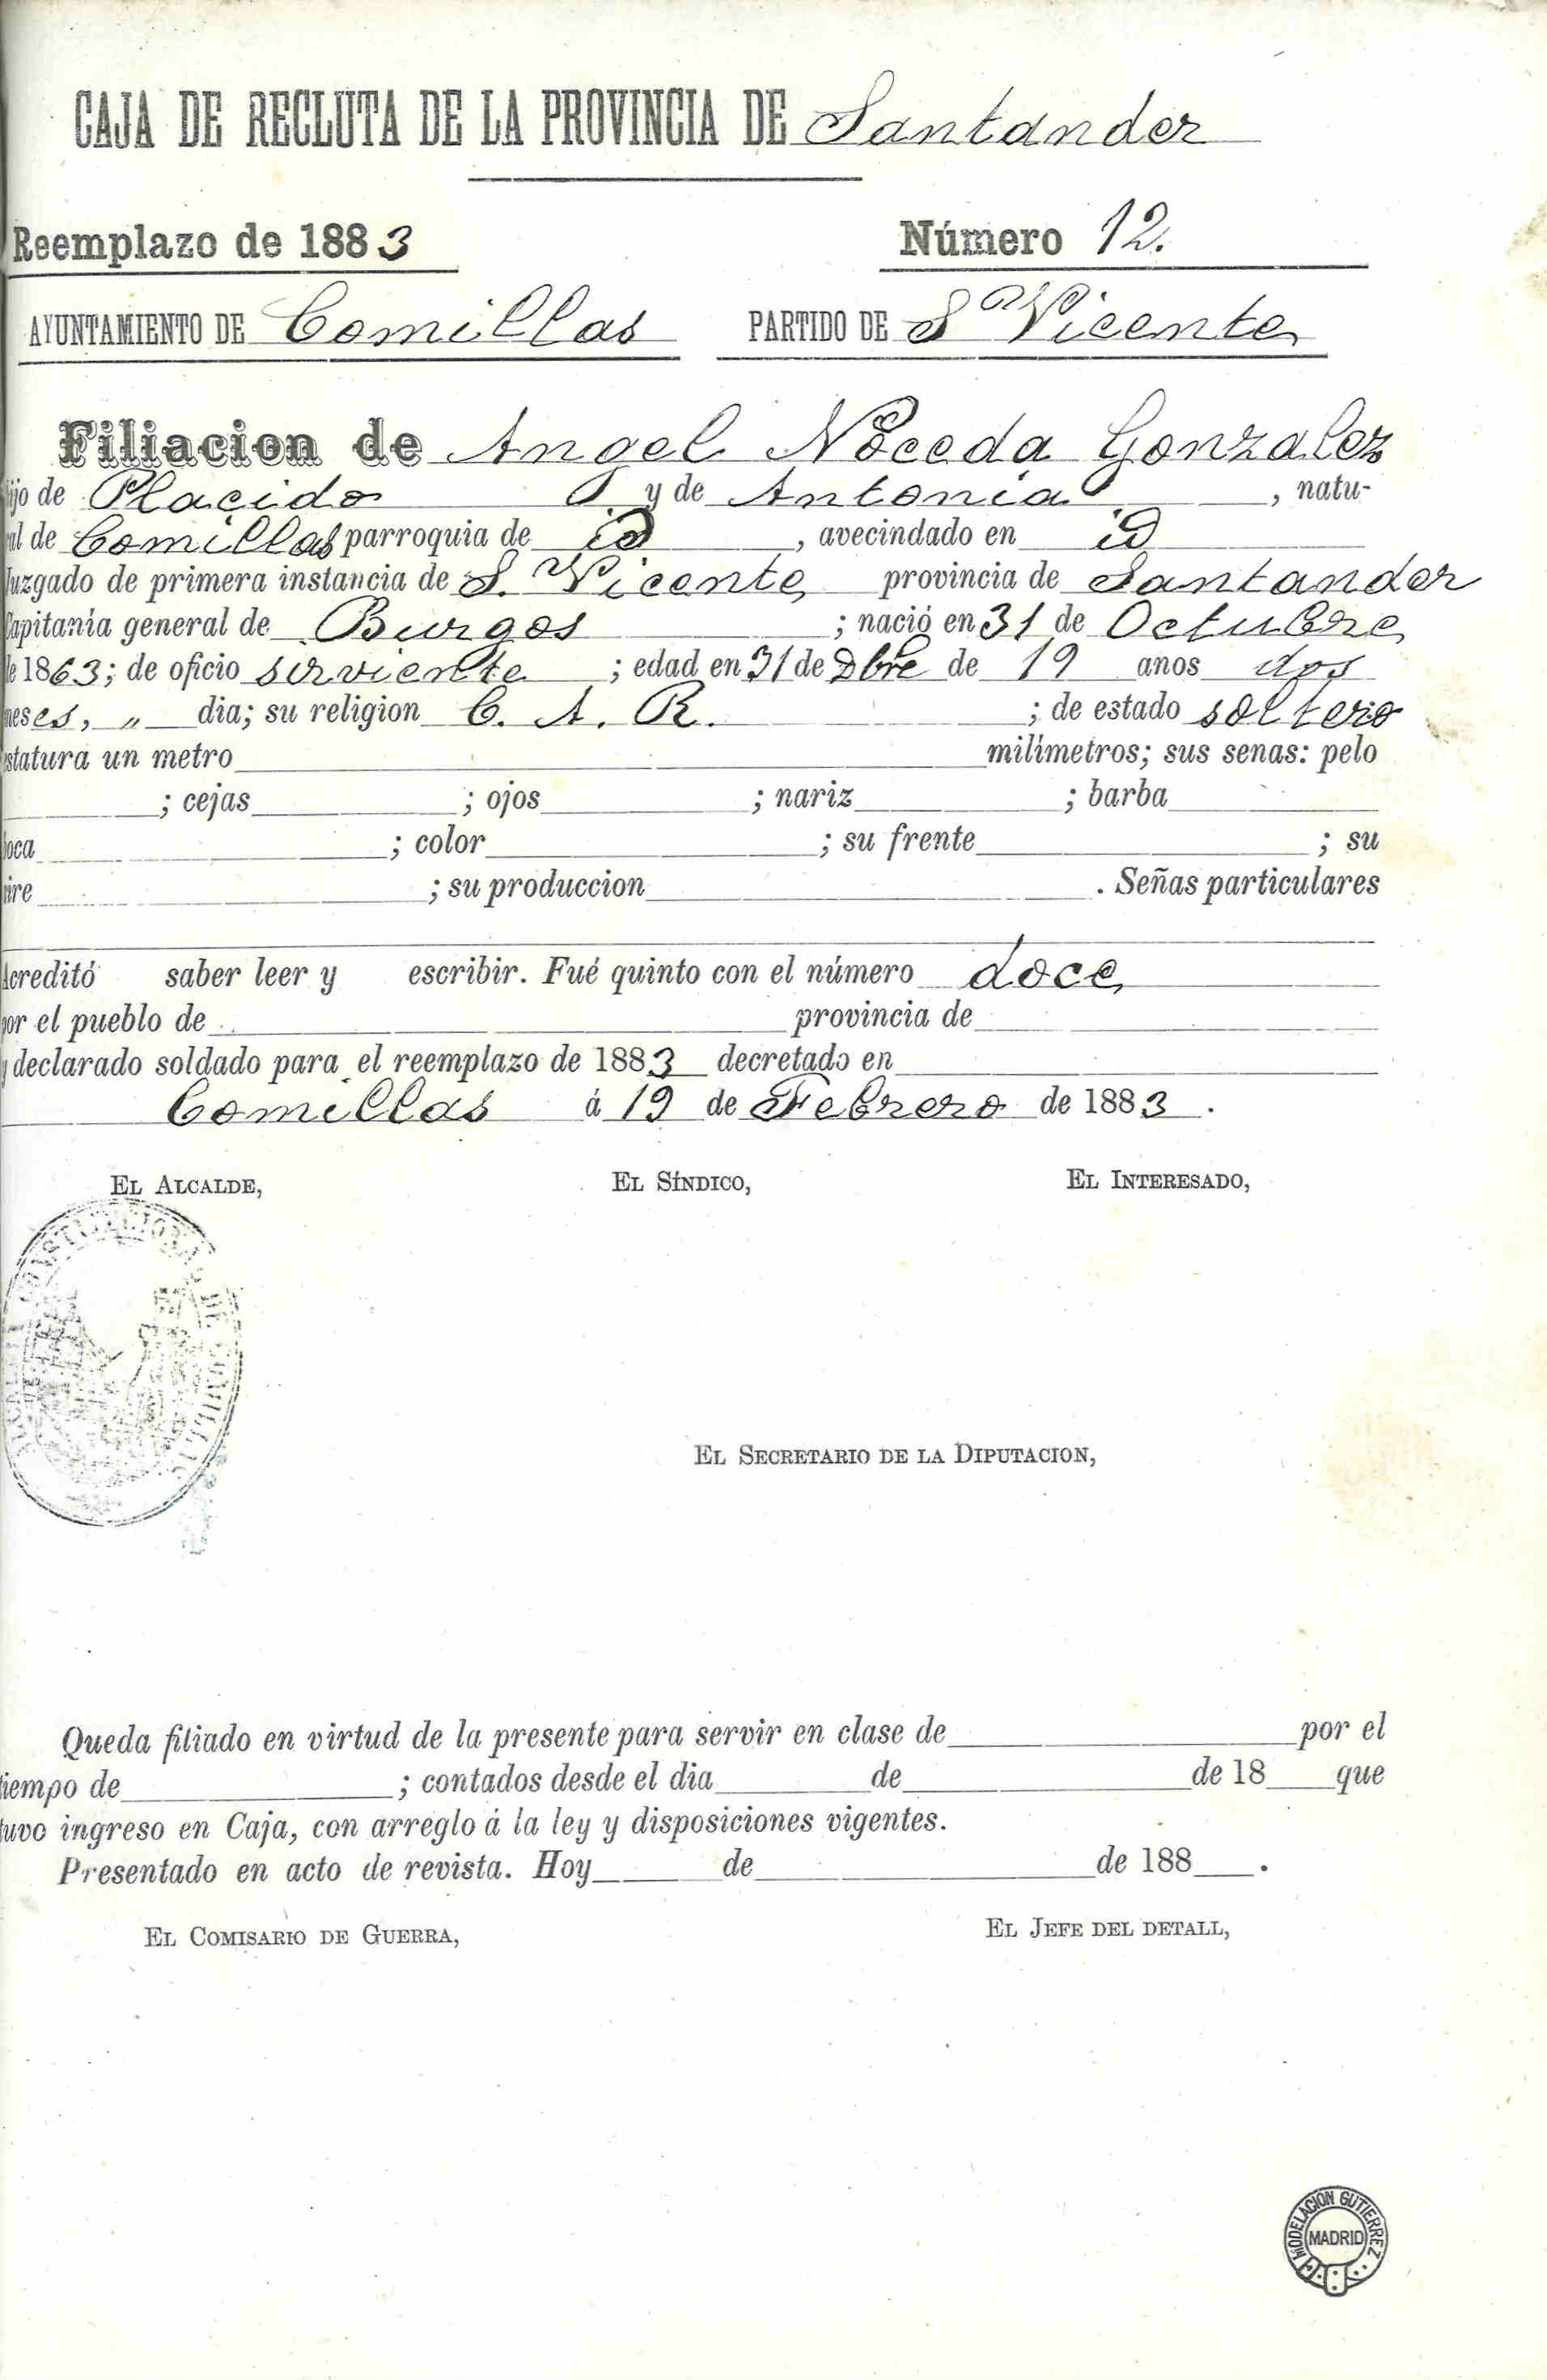 CAJA DE RECLUTA DE LA PROVINCIA DE Santander
Reemplazo de 1883 Número 12.
AYUNTAMIENTO DE Comillas PARTIDO DE Sn Vicente
Filiacion de Angel Noceda Gonzalez
ijo de Placido y de Antonia, natu-
al de Comillas parroquia de id, avecindado en id
Juzgado de primera instancia de S. Vicente provincia de Santander
Capitanía general de Burgos; nació en 31 de Octubre
de 1863; de oficio sirviente; edad en 31 de Dbre de 19 anos dos
meses, " dia; su religion C. A. R.; de estado soltero
estatura un metro milímetros; sus senas: pelo
; cejas ; ojos ; nariz ; barba
boca ; color ; su frente ; su
aire ; su produccion . Señas particulares
Acreditó saber leer y escribir. Fué quinto con el número doce
por el pueblo de provincia de
y declarado soldado para el reemplazo de 1883 decretado en
Comillas á 19 de Febrero de 1883.
EL ALCALDE, EL SÍNDICO, EL INTERESADO,
EL SECRETARIO DE LA DIPUTACION,
Queda filiado en virtud de la presente para servir en clase de por el
tiempo de ; contados desde el dia de de 18 que
tuvo ingreso en Caja, con arreglo á la ley y disposiciones vigentes.
Presentado en acto de revista. Hoy de de 188 .
EL COMISARIO DE GUERRA, EL JEFE DEL DETALL,
MODELACION GUTIERREZ
MADRID